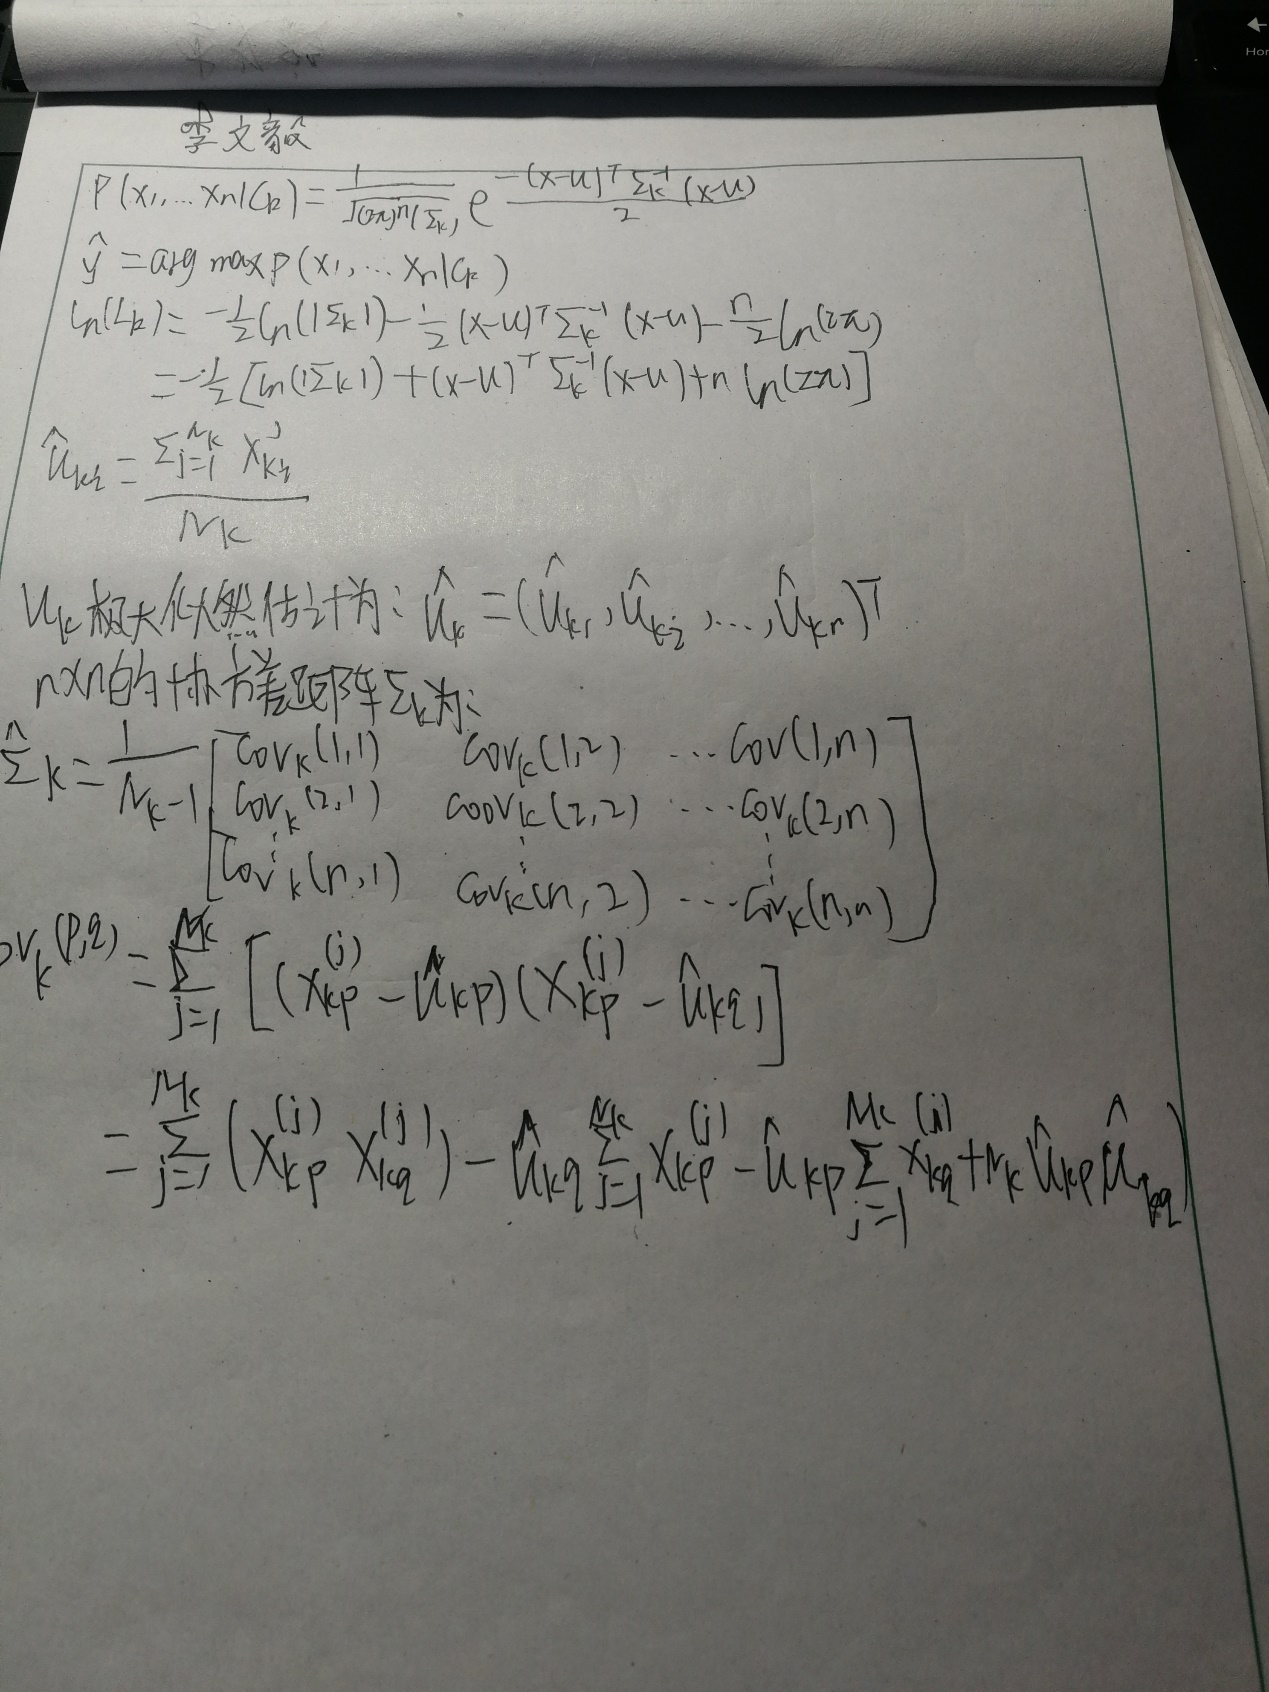 李文毅
P(x₁,... xₙ|Cₖ) = 1/√((2π)ⁿ|Σₖ|) e^(-(x-u)ᵀ Σₖ⁻¹ (x-u)/2)
ŷ = arg max P(x₁,... xₙ|Cₖ)
ln(Lₖ) = -1/2 ln(|Σₖ|) - 1/2 (x-u)ᵀ Σₖ⁻¹ (x-u) - n/2 ln(2π)
= -1/2 [ln(|Σₖ|) + (x-u)ᵀ Σₖ⁻¹ (x-u) + n ln(2π)]
û_ki = Σ_{j=1}^{Nk} X_ki^j / Nk
uₖ极大似然估计为: ûₖ = (û_k1, û_k2, ..., û_kn)ᵀ
n×n的协方差矩阵Σₖ为:
Σ̂ₖ = 1/(Nₖ-1) [Covₖ(1,1) Covₖ(1,2) ... Cov(1,n)
Covₖ(2,1) Coovₖ(2,2) ... Covₖ(2,n)
⋮ ⋮ ⋮
Covₖ(n,1) Covₖ(n,2) ... Covₖ(n,n)]
ovₖ(p,q) = Σ_{j=1}^{Nk} [(X_kp^(j) - û_kp)(X_kp^(j) - û_kq)]
= Σ_{j=1}^{Nk} (X_kp^(j) X_kq^(j)) - û_kq Σ_{j=1}^{Nk} X_kp^(j) - û_kp Σ_{j=1}^{Nk} X_kq^(j) + Nₖ û_kp û_kq)
Hor